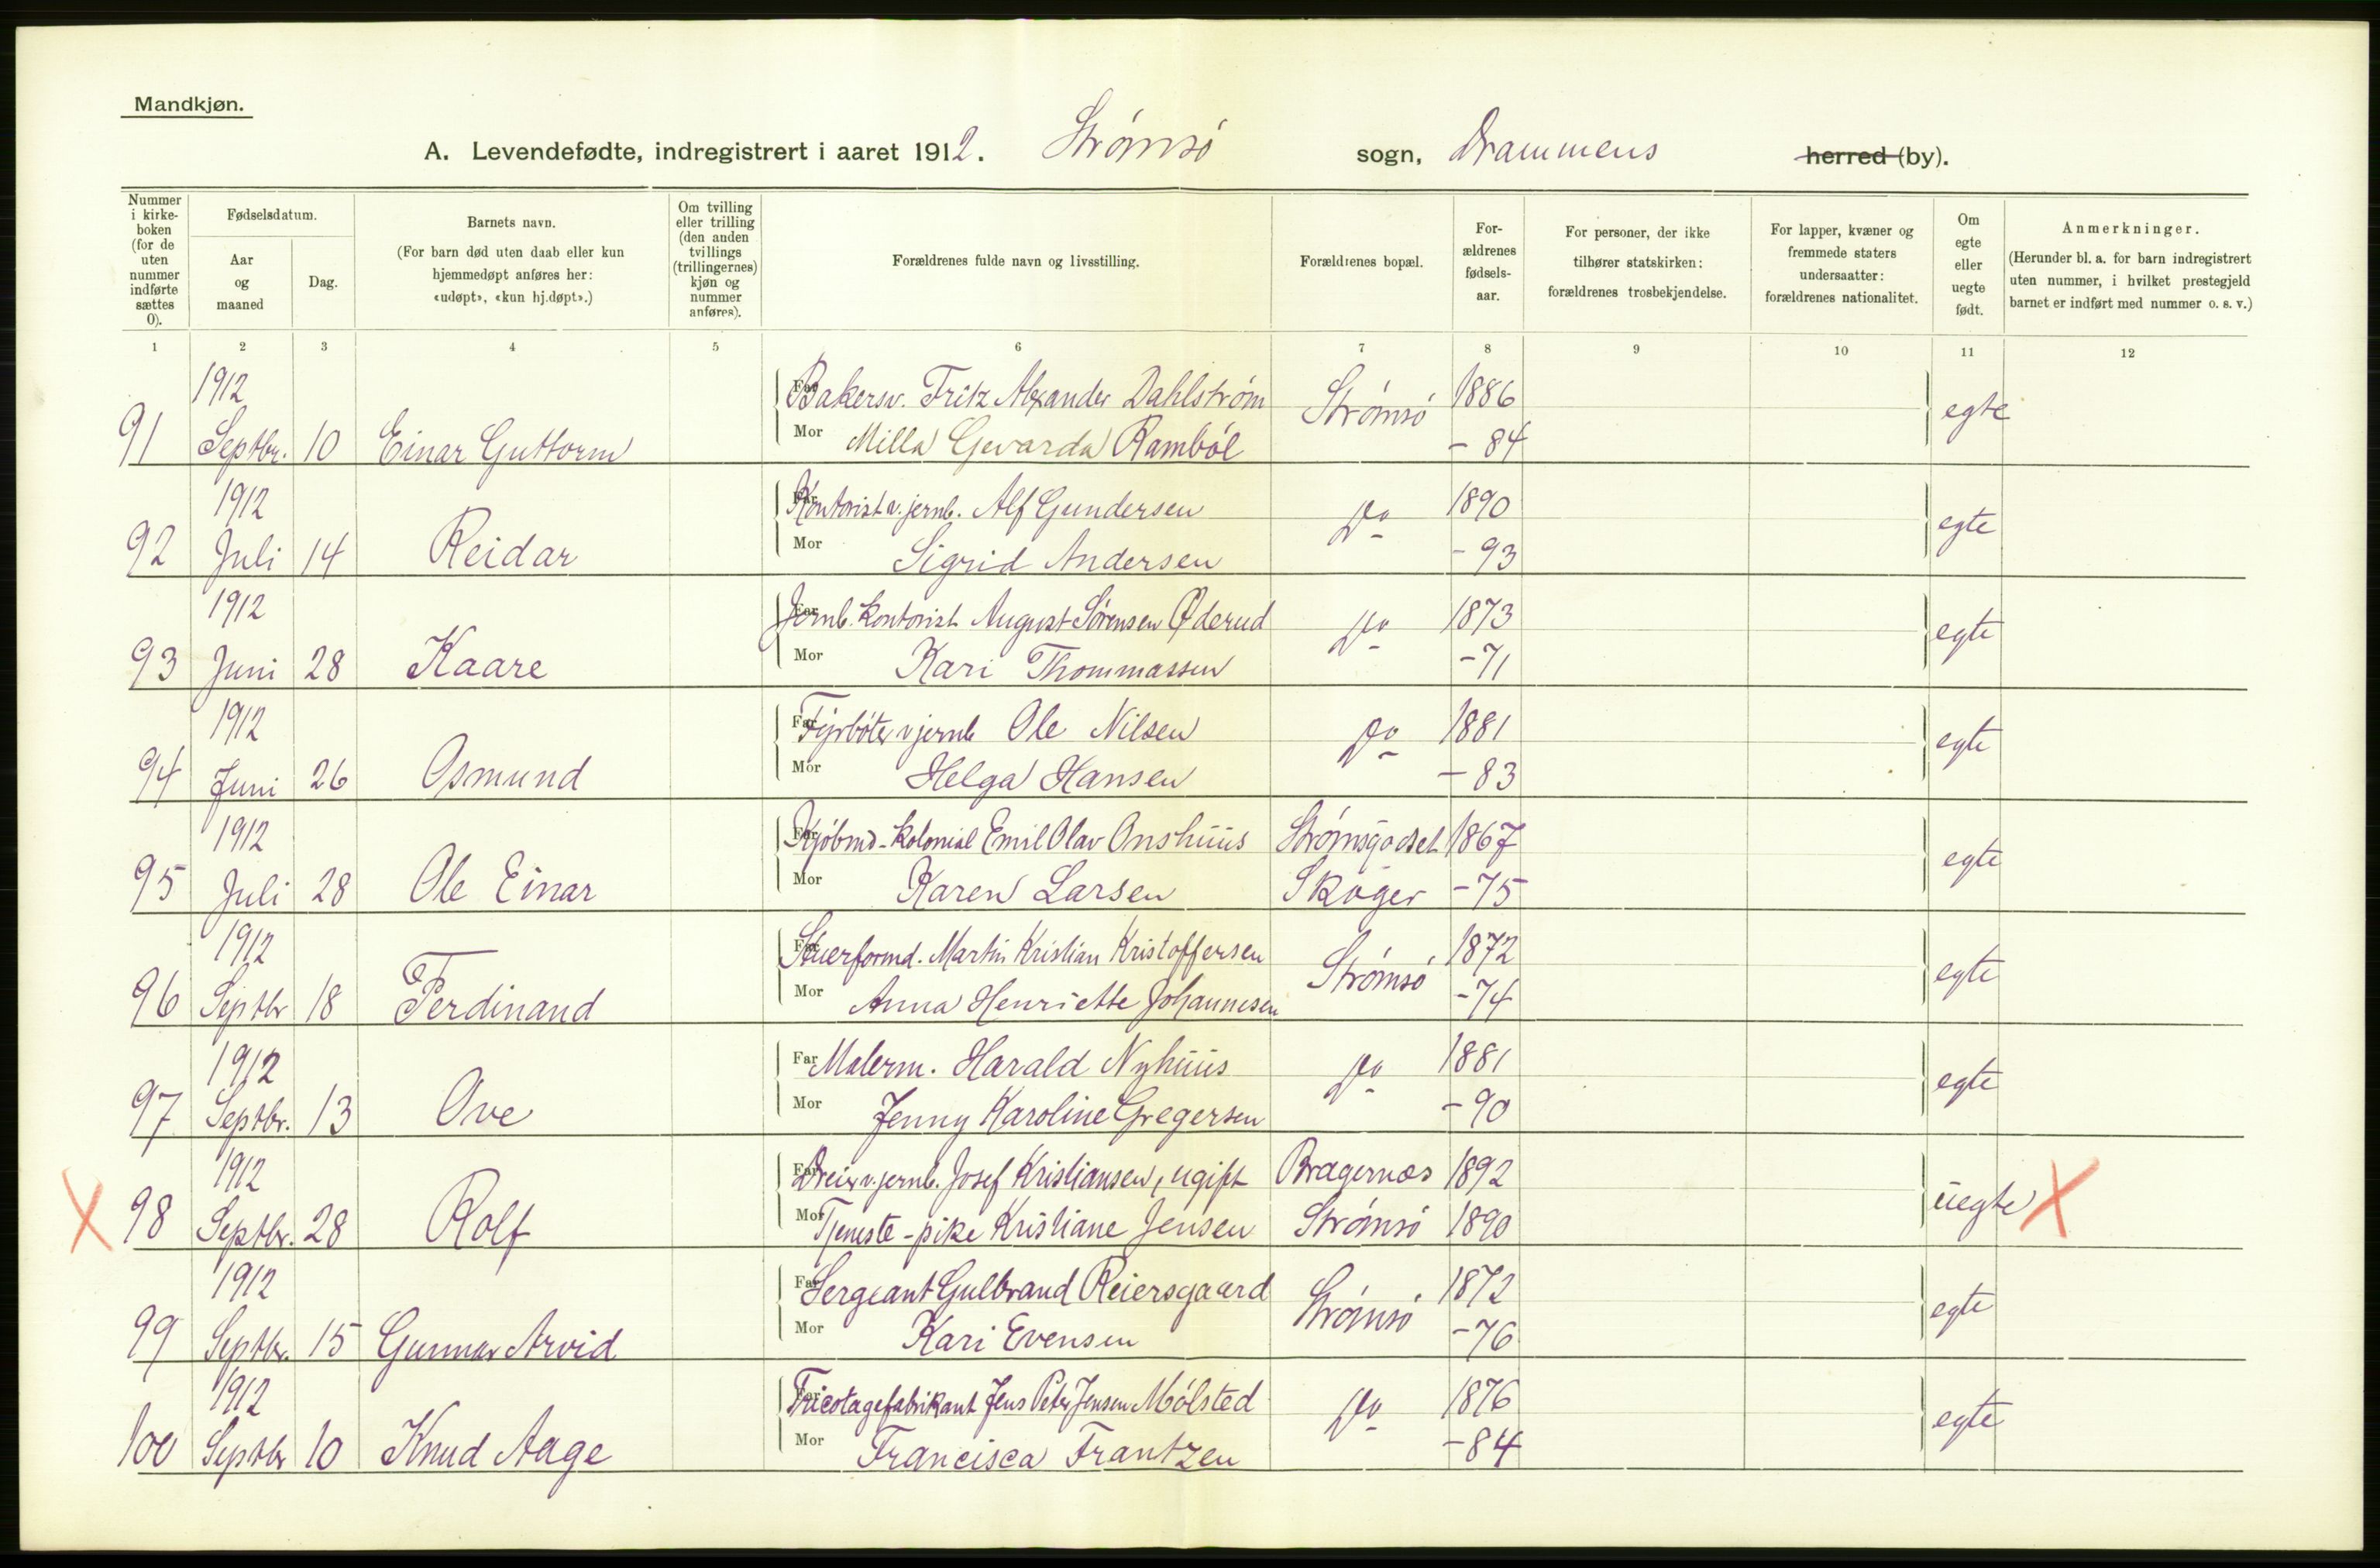 Mandkjøn.
A. Levendefødte, indregistrert i aaret 1912. Strømsø sogn, Drammens herred (by).
Nummer i kirkeboken (for de uten nummer indførte sættes 0).
Fødselsdatum.
Aar og maaned
Dag.
Barnets navn.
(For barn død uten daab eller kun hjemmedøpt anføres her: «udøpt», «kun hj.døpt».)
Om tvilling eller trilling (den anden tvillings (trillingernes) kjøn og nummer anføres).
Forældrenes fulde navn og livsstilling.
Forældrenes bopæl.
Forældrenes fødselsaar.
For personer, der ikke tilhører statskirken: forældrenes trosbekjendelse.
For lapper, kvæner og fremmede staters undersaatter: forældrenes nationalitet.
Om egte eller uegte født.
Anmerkninger.
(Herunder bl. a. for barn indregistrert uten nummer, i hvilket prestegjeld barnet er indført med nummer o. s. v.)
1 2 3 4 5 6 7 8 9 10 11 12
1912 Far Bakersv. Fritz Alexander Dahlstrøm Strømsø 1886 egte
91 Septbr. 10 Einar Guttorm Mor Milla Gevarda Rambøl - 84
1912 Far Kontorist v. jernb. Alf Gundersen Do 1890 egte
92 Juli 14 Reidar Mor Sigrid Andersen - 93
1912 Far Jernb. kontorist August Sørensen Øderud Do 1873 egte
93 Juni 28 Kaare Mor Kari Thommassen - 71
1912 Far Fyrbøter v jernb Ole Nilsen Do 1881 egte
94 Juni 26 Osmund Mor Helga Hansen - 83
1912 Far Kjøbmd - kolonial Emil Olav Onshuus Strømsgodset 1867 egte
95 Juli 28 Ole Einar Mor Karen Larsen Skoger - 75
1912 Far Stuerformd. Martin Kristian Kristoffersen Strømsø 1872 egte
96 Septbr 18 Ferdinand Mor Anna Henriette Johannesen - 74
1912 Far Malerm. Harald Nyhuus Do 1881 egte
97 Septbr. 13 Ove Mor Jenny Karoline Gregersen - 90
1912 Far Dreier v. jernb. Josef Kristiansen, ugift Bragernæs 1892 uegte X
X 98 Septbr. 28 Rolf Mor Tjeneste - pike Kristiane Jensen Strømsø 1890
1912 Far Sergeant Gulbrand Reiersgaard Strømsø 1872 egte
99 Septbr. 15 Gunnar Arvid Mor Kari Evensen - 76
1912 Far Tricotagefabrikant Jens Peter Jensen Mølsted Do 1876 egte
100 Septbr 10 Knud Aage Mor Francisca Frantzen - 84